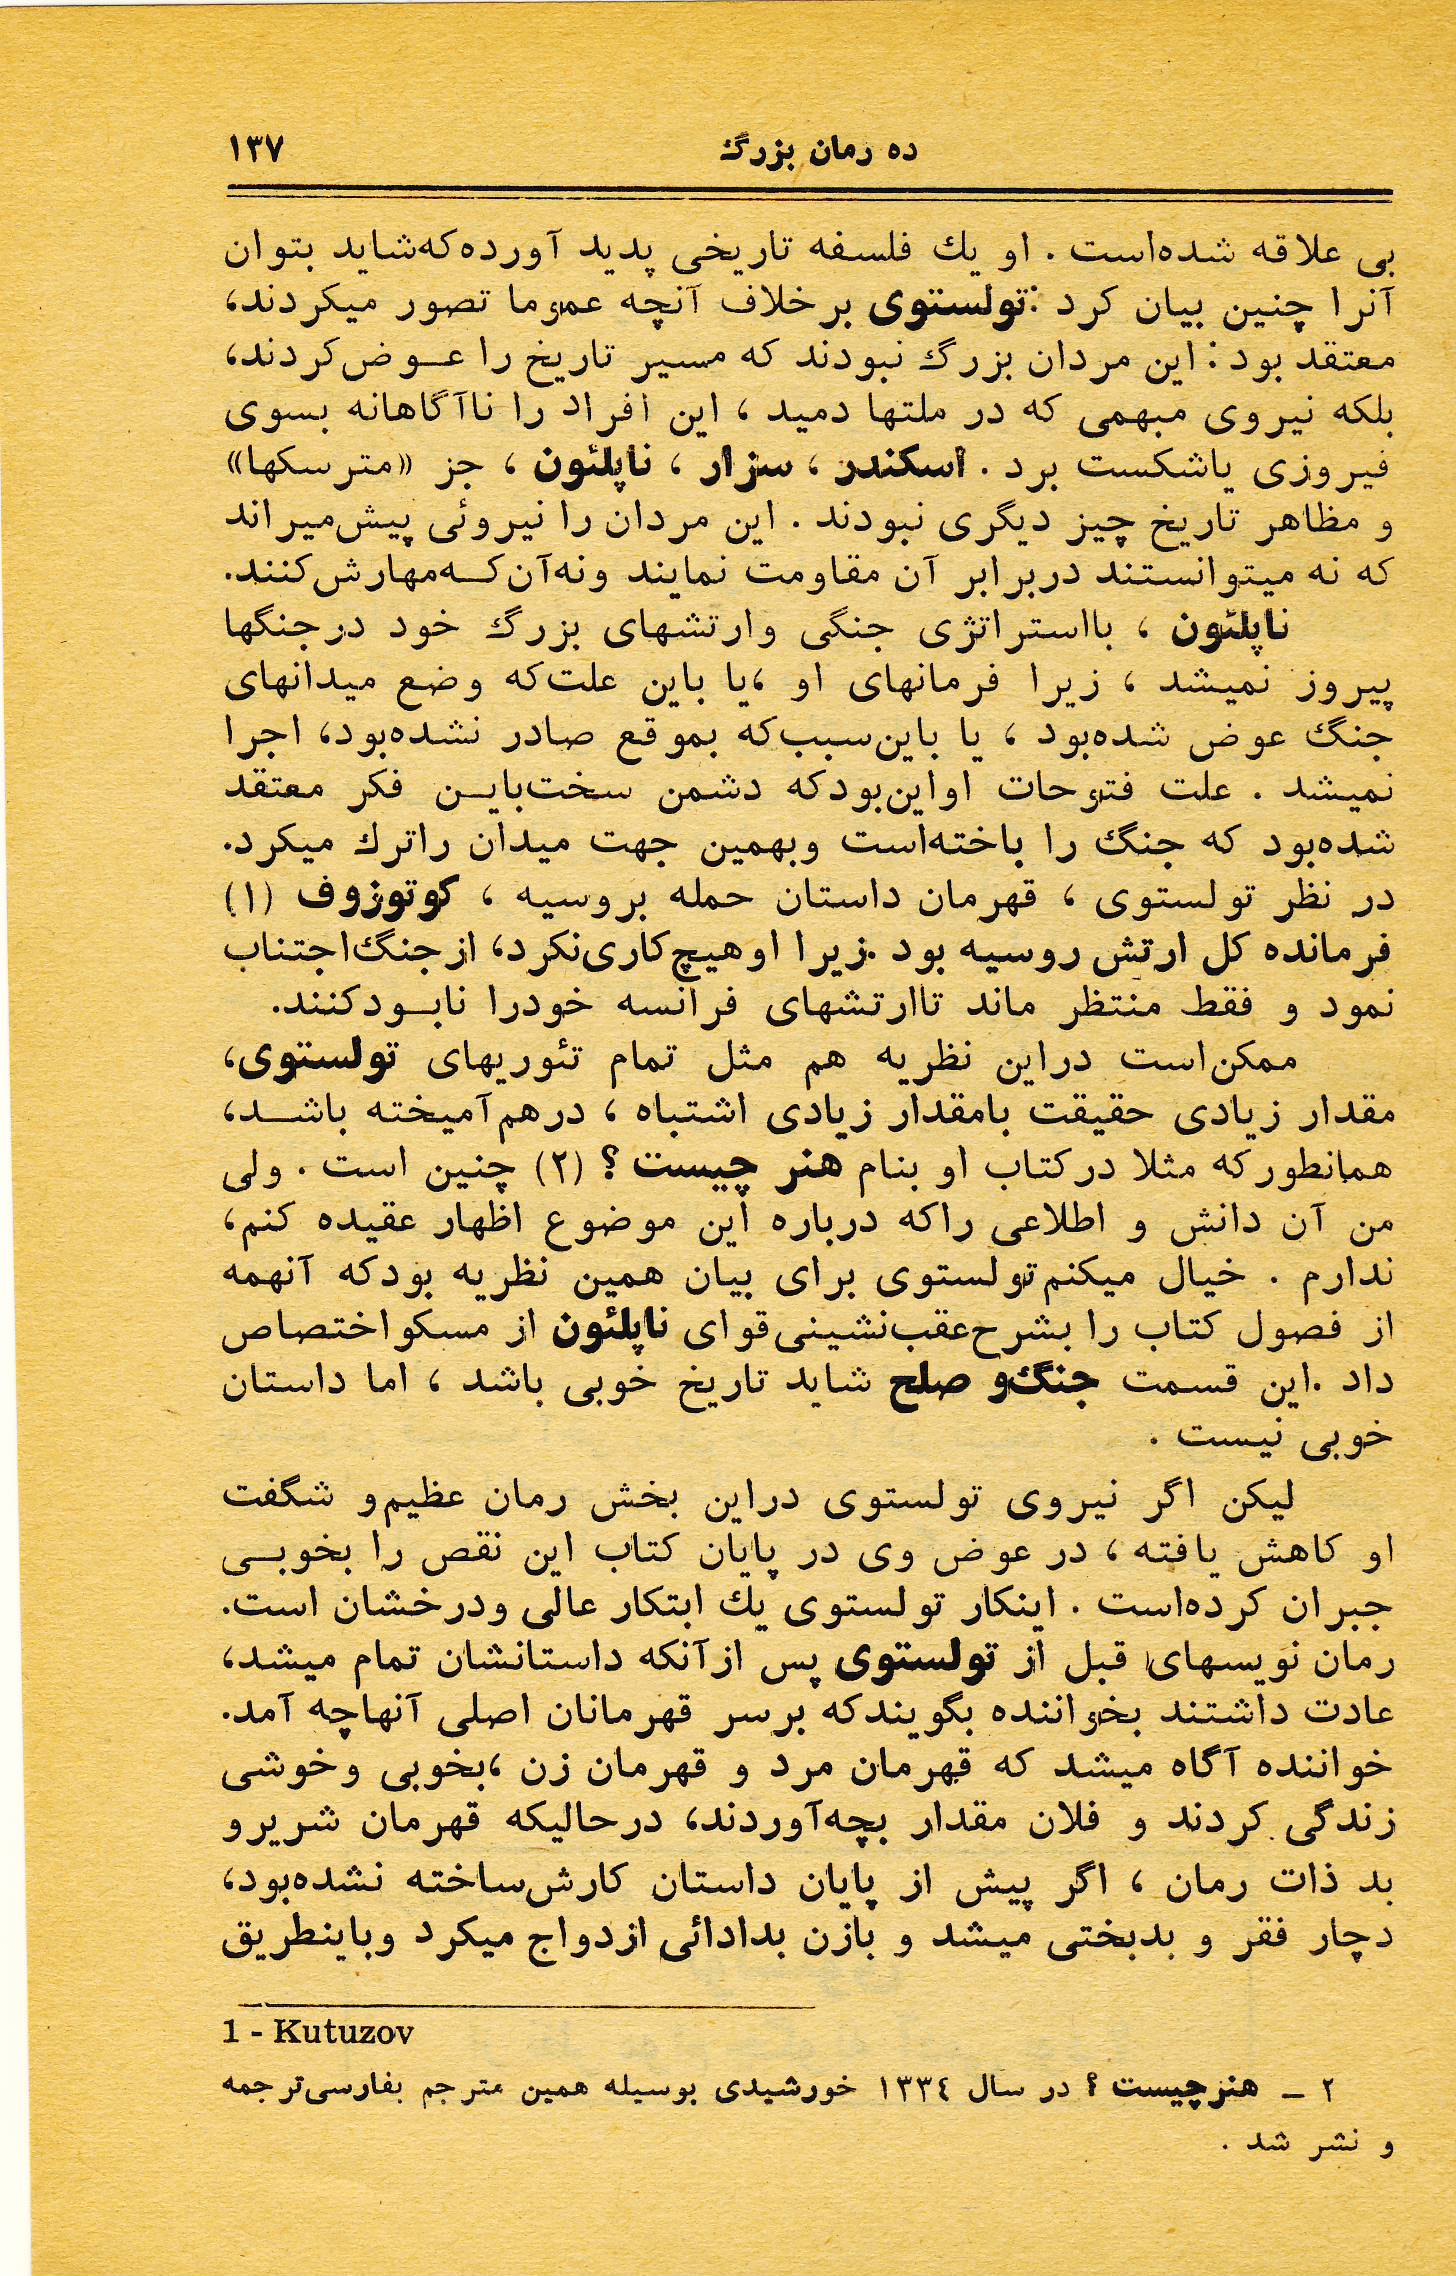 ده رمان بزرگ ۱۳۷
بی علاقه شده‌است . او یك فلسفه تاریخی پدید آورده‌که‌شاید بتوان
آنرا چنین بیان کرد :تولستوی برخلاف آنچه عموما تصور میکردند،
معتقد بود : این مردان بزرگ نبودند که مسیر تاریخ را عـوض‌کردند،
بلکه نیروی مبهمی که در ملتها دمید ، این افراد را ناآگاهانه بسوی
فیروزی یاشکست برد . اسکندر ، سزار ، ناپلئون ، جز «مترسکها»
و مظاهر تاریخ چیز دیگری نبودند . این مردان را نیروئی پیش‌میراند
که نه میتوانستند دربرابر آن مقاومت نمایند ونه‌آن‌کـه‌مهارش‌کنند.
ناپلئون ، بااستراتژی جنگی وارتشهای بزرگ خود درجنگها
پیروز نمیشد ، زیرا فرمانهای او ،یا باین علت‌که وضع میدانهای
جنگ عوض شده‌بود ، یا باین‌سبب‌که بموقع صادر نشده‌بود، اجرا
نمیشد . علت فتوحات اواین‌بودکه دشمن سخت‌بایـن فکر معتقد
شده‌بود که جنگ را باخته‌است وبهمین جهت میدان راترك میکرد.
در نظر تولستوی ، قهرمان داستان حمله بروسیه ، کوتوزوف (۱)
فرمانده کل ارتش روسیه بود .زیرا اوهیچ‌کاری‌نکرد، ازجنگ‌اجتناب
نمود و فقط منتظر ماند تاارتشهای فرانسه خودرا نابـودکنند.
ممکن‌است دراین نظریه هم مثل تمام تئوریهای تولستوی،
مقدار زیادی حقیقت بامقدار زیادی اشتباه ، درهم‌آمیخته باشـد،
همانطورکه مثلا درکتاب او بنام هنر چیست ؟ (۲) چنین است . ولی
من آن دانش و اطلاعی راکه درباره این موضوع اظهار عقیده کنم،
ندارم . خیال میکنم‌تولستوی برای بیان همین نظریه بودکه آنهمه
از فصول کتاب را بشرح‌عقب‌نشینی‌قوای ناپلئون از مسکواختصاص
داد .این قسمت جنگ‌و صلح شاید تاریخ خوبی باشد ، اما داستان
خوبی نیست .
لیکن اگر نیروی تولستوی دراین بخش رمان عظیم‌و شگفت
او کاهش یافته ، در عوض وی در پایان کتاب این نقص را بخوبـی
جبران کرده‌است . اینکار تولستوی یك ابتکار عالی ودرخشان است.
رمان نویسهای قبل از تولستوی پس ازآنکه داستانشان تمام میشد،
عادت داشتند بخواننده بگویندکه برسر قهرمانان اصلی آنهاچه آمد.
خواننده آگاه میشد که قهرمان مرد و قهرمان زن ،بخوبی وخوشی
زندگی کردند و فلان مقدار بچه‌آوردند، درحالیکه قهرمان شریرو
بد ذات رمان ، اگر پیش از پایان داستان کارش‌ساخته نشده‌بود،
دچار فقر و بدبختی میشد و بازن بدادائی ازدواج میکرد وباینطریق
1 - Kutuzov
۲ ــ هنرچیست ؟ در سال ۱۳۳٤ خورشیدی بوسیله همین مترجم بفارسی‌ترجمه
و نشر شد .